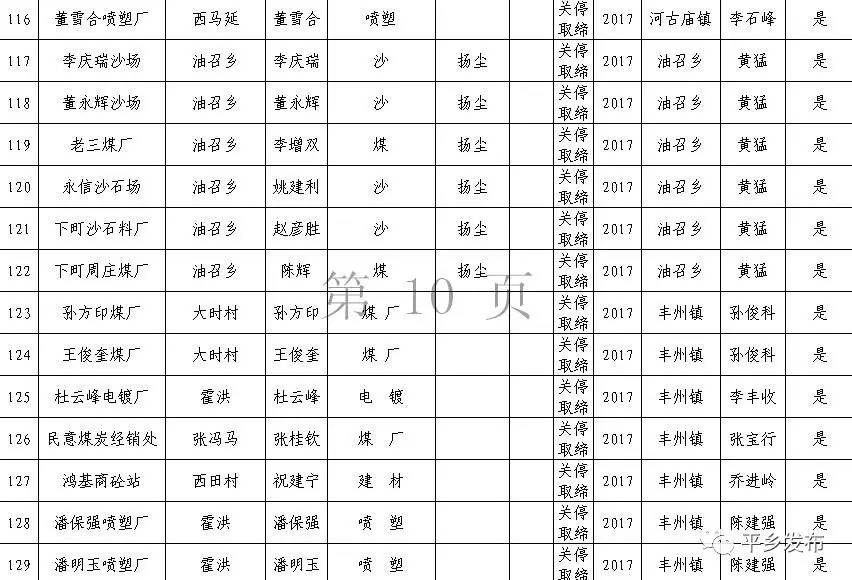 116 董雪合喷塑厂 西马延 董雪合 喷塑 关停取缔 2017 河古庙镇 李石峰 是
117 李庆瑞沙场 油召乡 李庆瑞 沙 扬尘 关停取缔 2017 油召乡 黄猛 是
118 董永辉沙场 油召乡 董永辉 沙 扬尘 关停取缔 2017 油召乡 黄猛 是
119 老三煤厂 油召乡 李增双 煤 扬尘 关停取缔 2017 油召乡 黄猛 是
120 永信沙石场 油召乡 姚建利 沙 扬尘 关停取缔 2017 油召乡 黄猛 是
121 下町沙石料厂 油召乡 赵彦胜 沙 扬尘 关停取缔 2017 油召乡 黄猛 是
122 下町周庄煤厂 油召乡 陈辉 煤 扬尘 关停取缔 2017 油召乡 黄猛 是
第 10 页
123 孙方印煤厂 大时村 孙方印 煤 厂 关停取缔 2017 丰州镇 孙俊科 是
124 王俊奎煤厂 大时村 王俊奎 煤 厂 关停取缔 2017 丰州镇 孙俊科 是
125 杜云峰电镀厂 霍洪 杜云峰 电 镀 关停取缔 2017 丰州镇 李丰收 是
126 民意煤炭经销处 张冯马 张桂钦 煤 厂 关停取缔 2017 丰州镇 张宝行 是
127 鸿基商砼站 西田村 祝建宁 建 材 关停取缔 2017 丰州镇 乔进岭 是
128 潘保强喷塑厂 霍洪 潘保强 喷 塑 关停取缔 2017 丰州镇 陈建强 是
平乡发布
129 潘明玉喷塑厂 霍洪 潘明玉 喷 塑 关停取缔 2017 丰州镇 陈建强 是